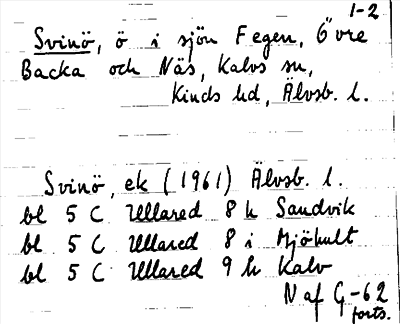 1-2
Svinö, ö i sjön Fegen, Övre
Backa och Näs, Kalvs sn,
Kinds hd, Älvsb. l.
Svinö, ek (1961) Älvsb. l.
bl 5 C Ullared 8 h Sandvik
bl 5 C Ullared 8 i Mjöhult
bl 5 C Ullared 9 h Kalv
N af G-62
forts.